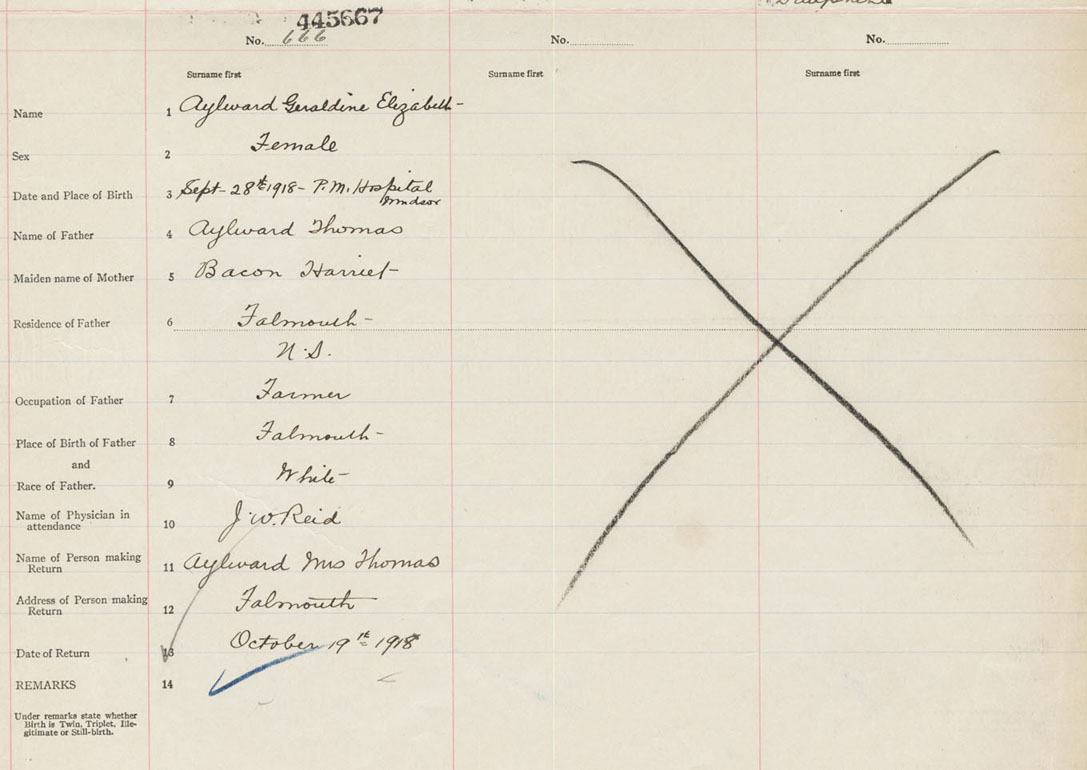 445667
No. 666
No.
No.
Surname first
Surname first
Surname first
Name 1 Aylward Geraldine Elizabeth-
Sex 2 Female
Date and Place of Birth 3 Sept- 28th 1918- P.M. Hospital
Windsor
Name of Father 4 Aylward Thomas
Maiden name of Mother 5 Bacon Harriet-
Residence of Father 6 Falmouth-
N.S.
Occupation of Father 7 Farmer
Place of Birth of Father 8 Falmouth-
and
Race of Father. 9 White-
Name of Physician in
attendance 10 J.W. Reid
Name of Person making
Return 11 Aylward Mrs Thomas
Address of Person making
Return 12 Falmouth
Date of Return 13 October 19th 1918
REMARKS 14
Under remarks state whether
Birth is Twin, Triplet, Ille-
gitimate or Still-birth.